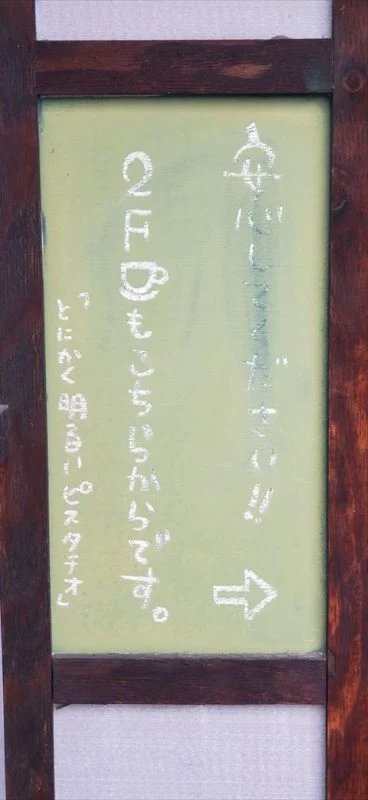 安心してください!!
2F☕もこちらからです。
「とにかく明るいピスタチオ」